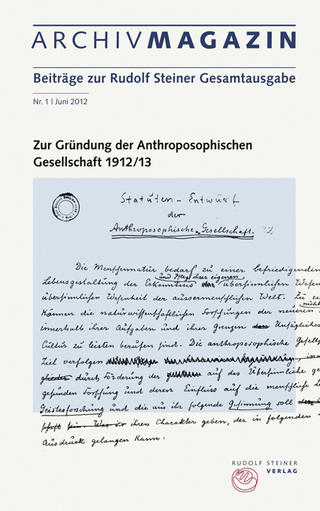 ARCHIVMAGAZIN
Beiträge zur Rudolf Steiner Gesamtausgabe
Nr. 1 | Juni 2012
Zur Gründung der Anthroposophischen
Gesellschaft 1912/13
Statuten-Entwurf
der
Anthroposophische Gesellschaft.
Die Menschennatur bedarf zu einer befriedigenden
und Pflege ihrer eigenen
Lebensgestaltung der Erkenntnis übersinnlichen
übersinnlichen Wesenheit der aussermenschlichen Welt. Zu
können die naturwissenschaftlichen Forschungen der neueren
innerhalb ihrer Aufgaben und ihrer Grenzen
Cultur zu leisten berufen sind. Die anthroposophische
Ziel verfolgen
durch Förderung der auf das Übersinnliche
Forschung und deren Einfluss auf die menschliche
Geistesforschung und die aus ihr folgende Gesinnung soll
ihren Charakter geben, der in folgenden
Ausdruck gelangen kann:
RUDOLF STEINER
VERLAG